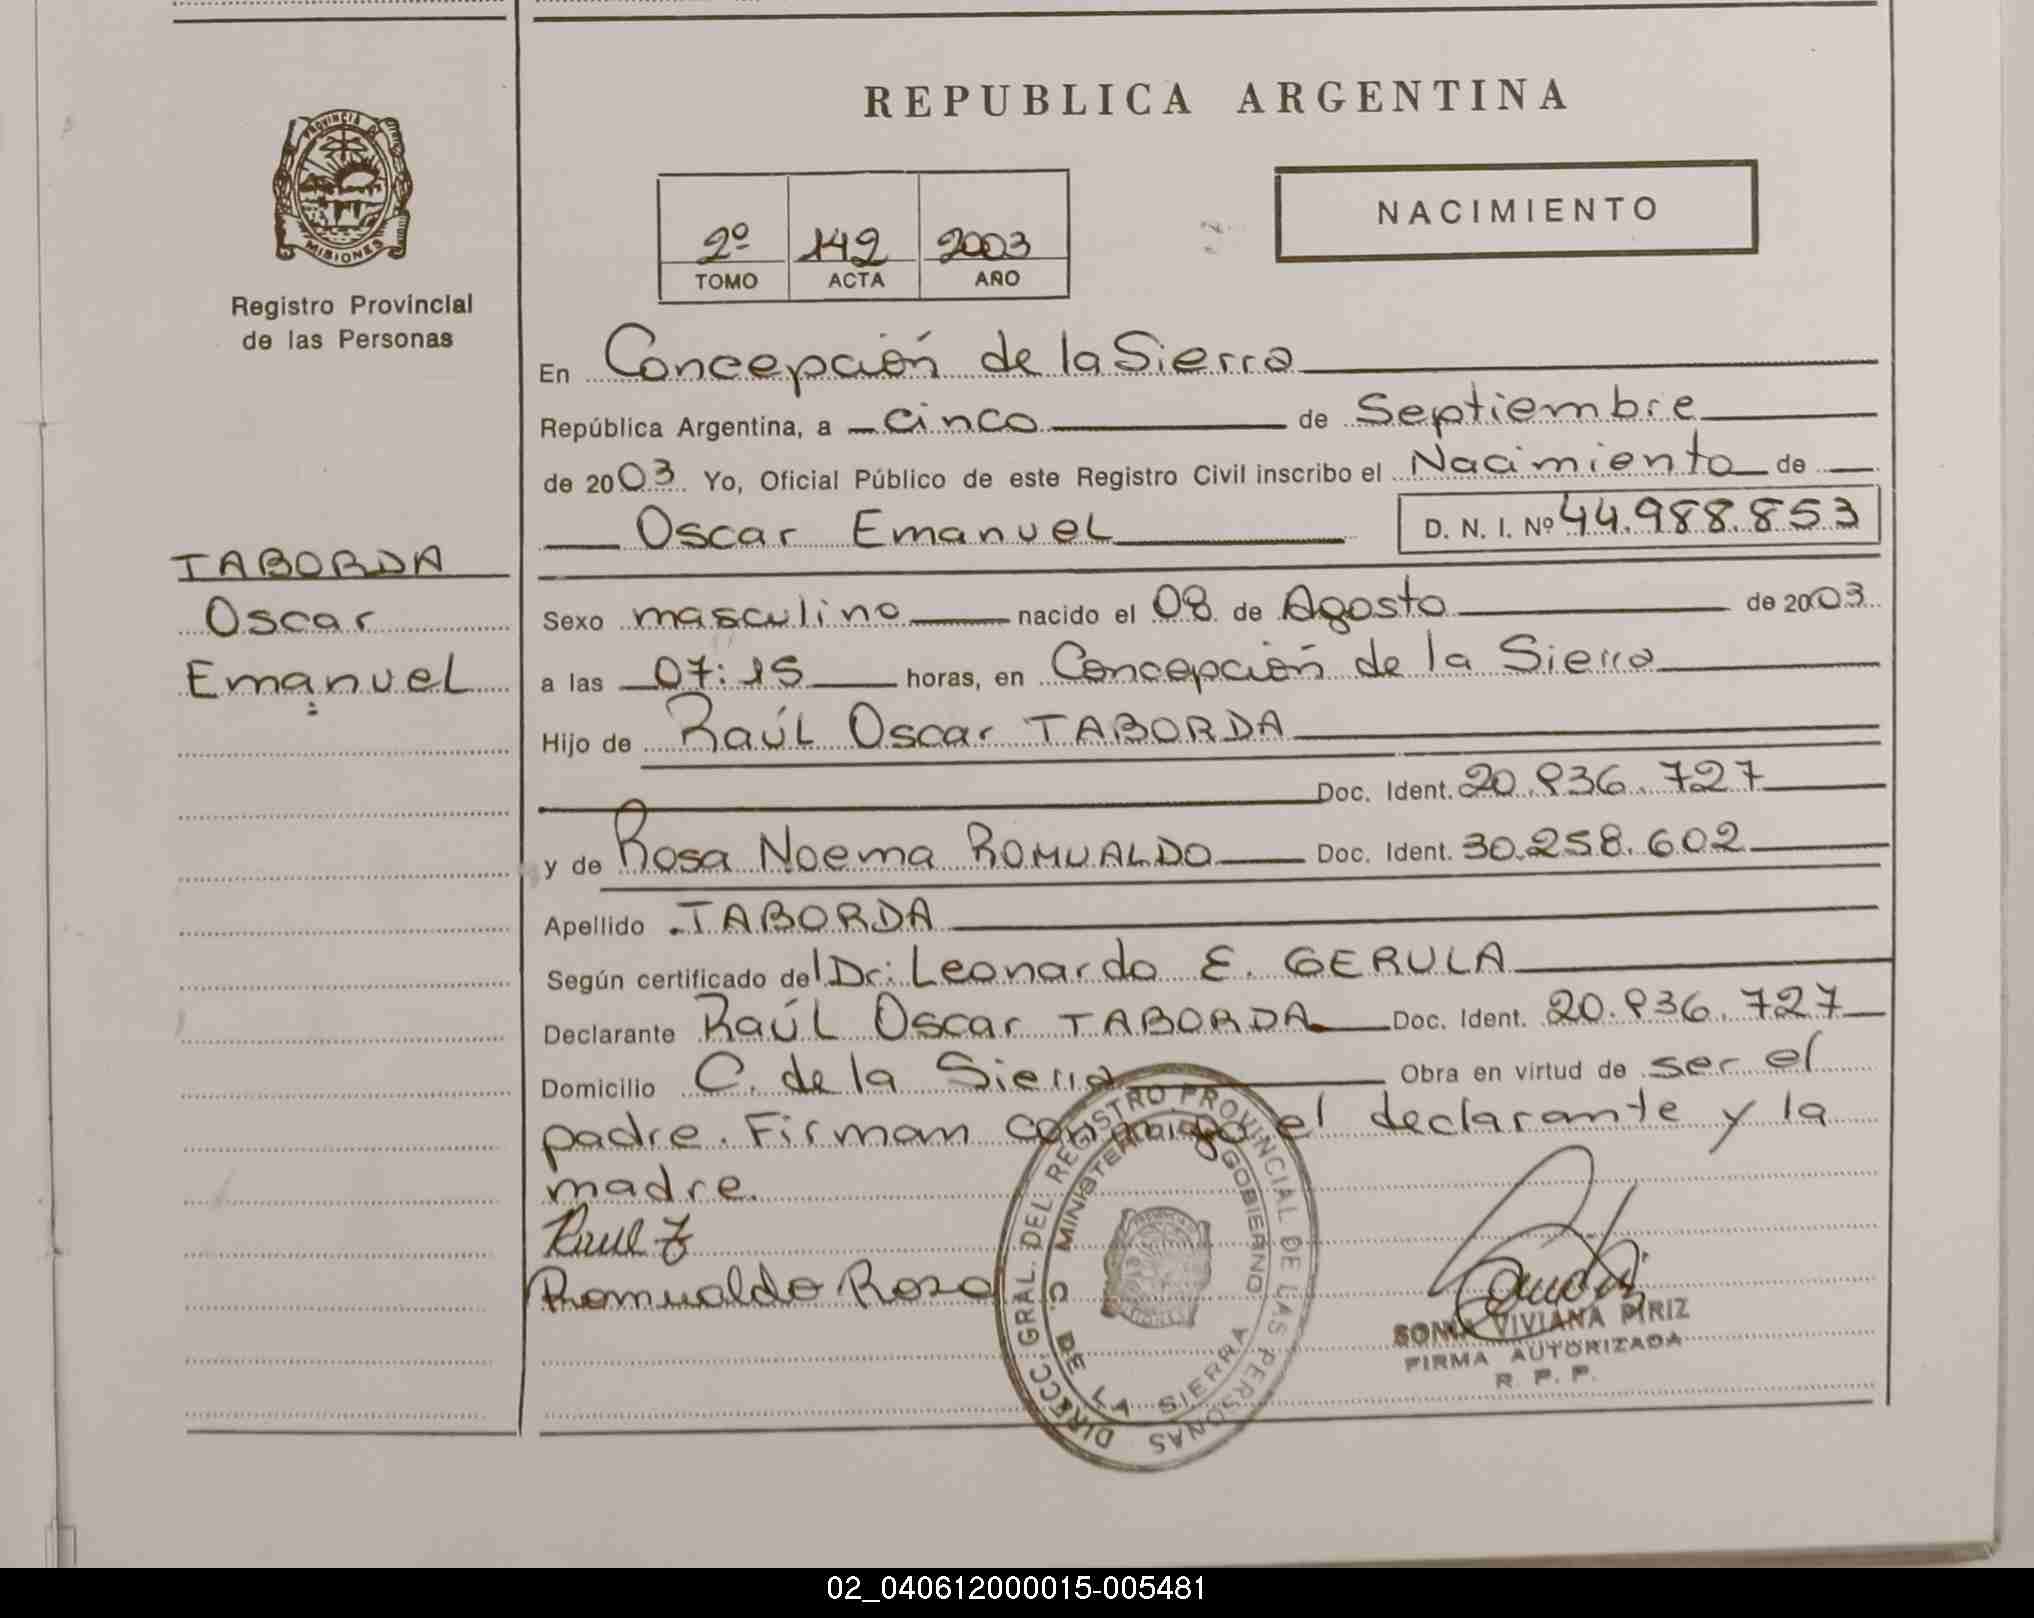 REPUBLICA ARGENTINA
PROVINCIA DE
MISIONES
Registro Provincial
de las Personas
NACIMIENTO
2º 142 2003
TOMO ACTA AÑO
En Concepción de la Sierra
República Argentina, a cinco de Septiembre
de 2003 Yo, Oficial Público de este Registro Civil inscribo el Nacimiento de
Oscar Emanuel D. N. I. Nº 44.988.853
TABORDA
Oscar
Emanuel
Sexo masculino nacido el 08 de Agosto de 2003
a las 07:15 horas, en Concepción de la Sierra
Hijo de Raúl Oscar TABORDA
Doc. Ident. 20.836.727
y de Rosa Noema ROMUALDO Doc. Ident. 30.258.602
Apellido TABORDA
Según certificado del Dr: Leonardo E. GERULA
Declarante Raúl Oscar TABORDA Doc. Ident. 20.836.727
Domicilio C. de la Sierra Obra en virtud de ser el
padre. Firman conmigo el declarante y la
madre.
Raul T
Romualdo Rosa
DIRECC. GRAL. DEL REGISTRO PROVINCIAL DE LAS PERSONAS
MINISTERIO DE GOBIERNO
C. DE LA SIERRA
SONIA VIVIANA PIRIZ
FIRMA AUTORIZADA
R. P. P.
02_040612000015-005481